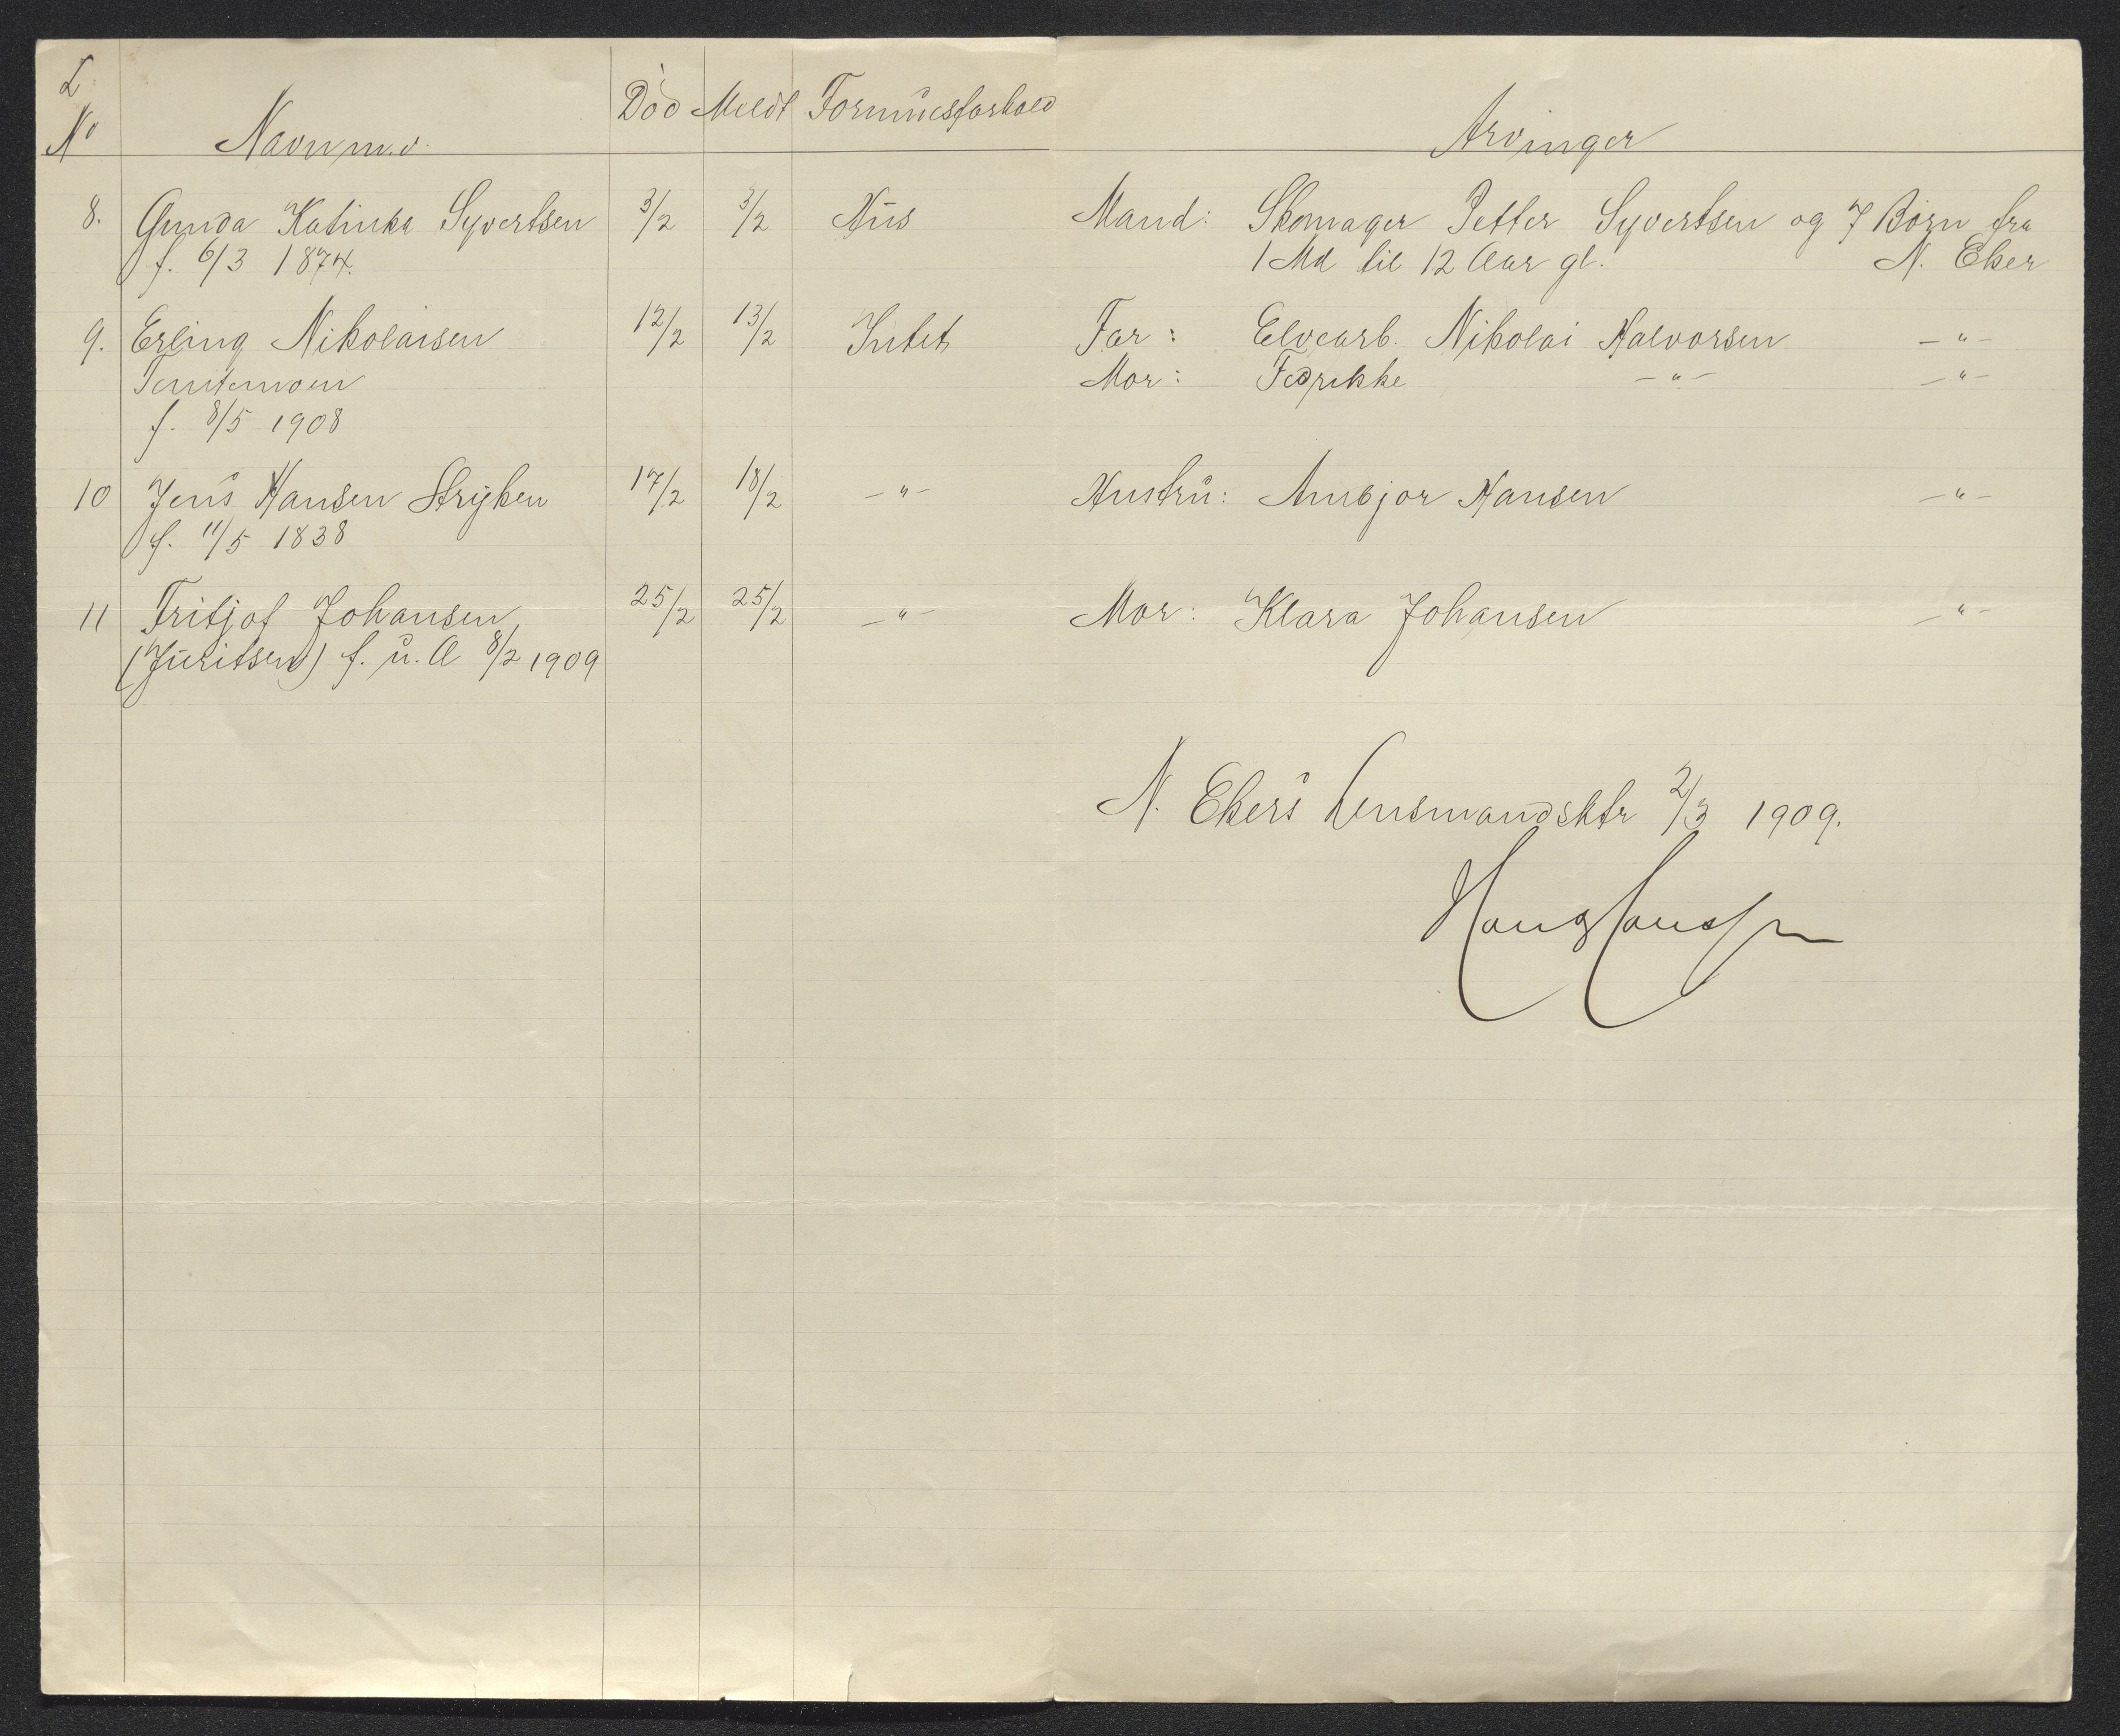 L
No Navn m.v. Død Meldt Formuesforhold Arvinger
8. Gunda Katinka Syvertsen 3/2 3/2 Hus Mand: Skomager Petter Syvertsen og 7 Børn fra
f. 6/3 1874. 1 Md til 12 Aar gl. N. Eker
9. Erling Nikolaisen 12/2 13/2 Intet Far: Elvearb. Nikolai Halvorsen -"-
Mor: Fedrikke -"- -"-
f. 8/5 1908
10 Jens Hansen Stryken 17/2 18/2 -"- Hustru: Ambjør Hansen -"-
f. 11/5 1838
11 Fritjof Johansen 25/2 25/2 -"- Mor: Klara Johansen -"-
(Juritsen) f. u. Æ 8/2 1909
N. Ekers Lensmandsktr 2/3 1909.
Hans Hansen